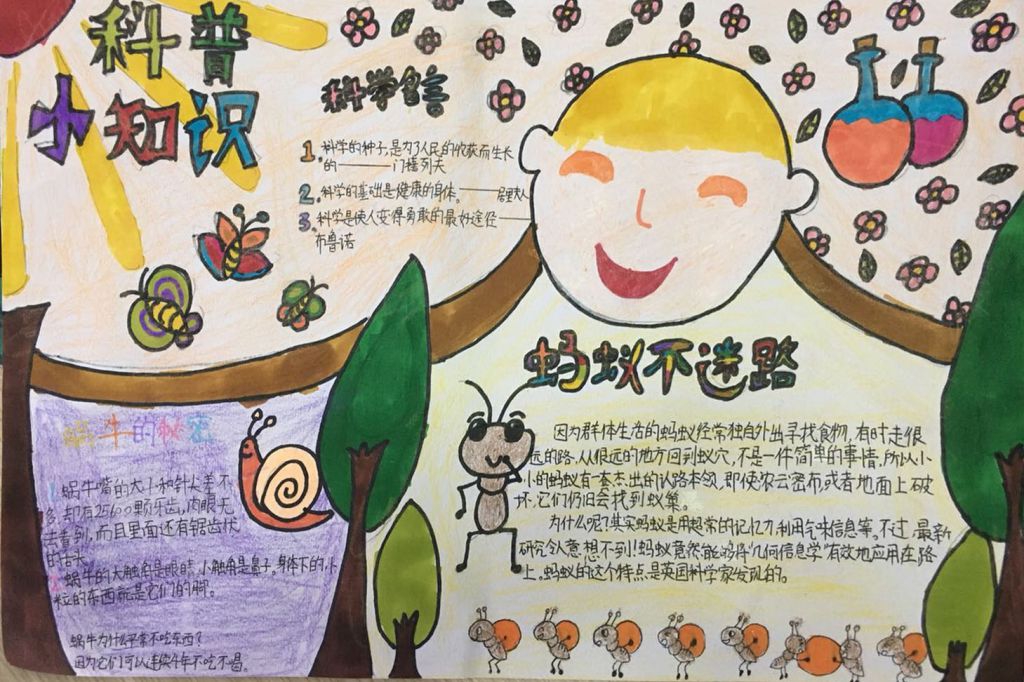 科普
小知识
科学名言
1.科学的种子,是为了人民的收获而生长
的———门捷列夫
2.科学的基础是健康的身体。———居里夫人
3.科学是使人变得勇敢的最好途径——
布鲁诺
蚂蚁不迷路
因为群体生活的蚂蚁经常独自外出寻找食物,有时走很
远的路,从很远的地方回到蚁穴,不是一件简单的事情,所以小
小的蚂蚁有一套杰出的认路本领,即使农云密布或者地面上破
坏,它们仍旧会找到蚁巢。
为什么呢?其实蚂蚁是用超常的记忆力利用气味信息等。不过,最新
研究令人意想不到!蚂蚁竟然能够将几何信息学有效地应用在路
上。蚂蚁的这个特点是英国科学家发现的。
蜗牛的秘密
1.蜗牛嘴的大小和针尖差不
多,却有25600颗牙齿,肉眼无
法看到,而且里面还有锯齿状
的舌头。
蜗牛的大触角是眼睛,小触角是鼻子。身体下的小
粒的东西就是它们的脚。
蜗牛为什么平常不吃东西?
因为它们可以连续4年不吃不喝。